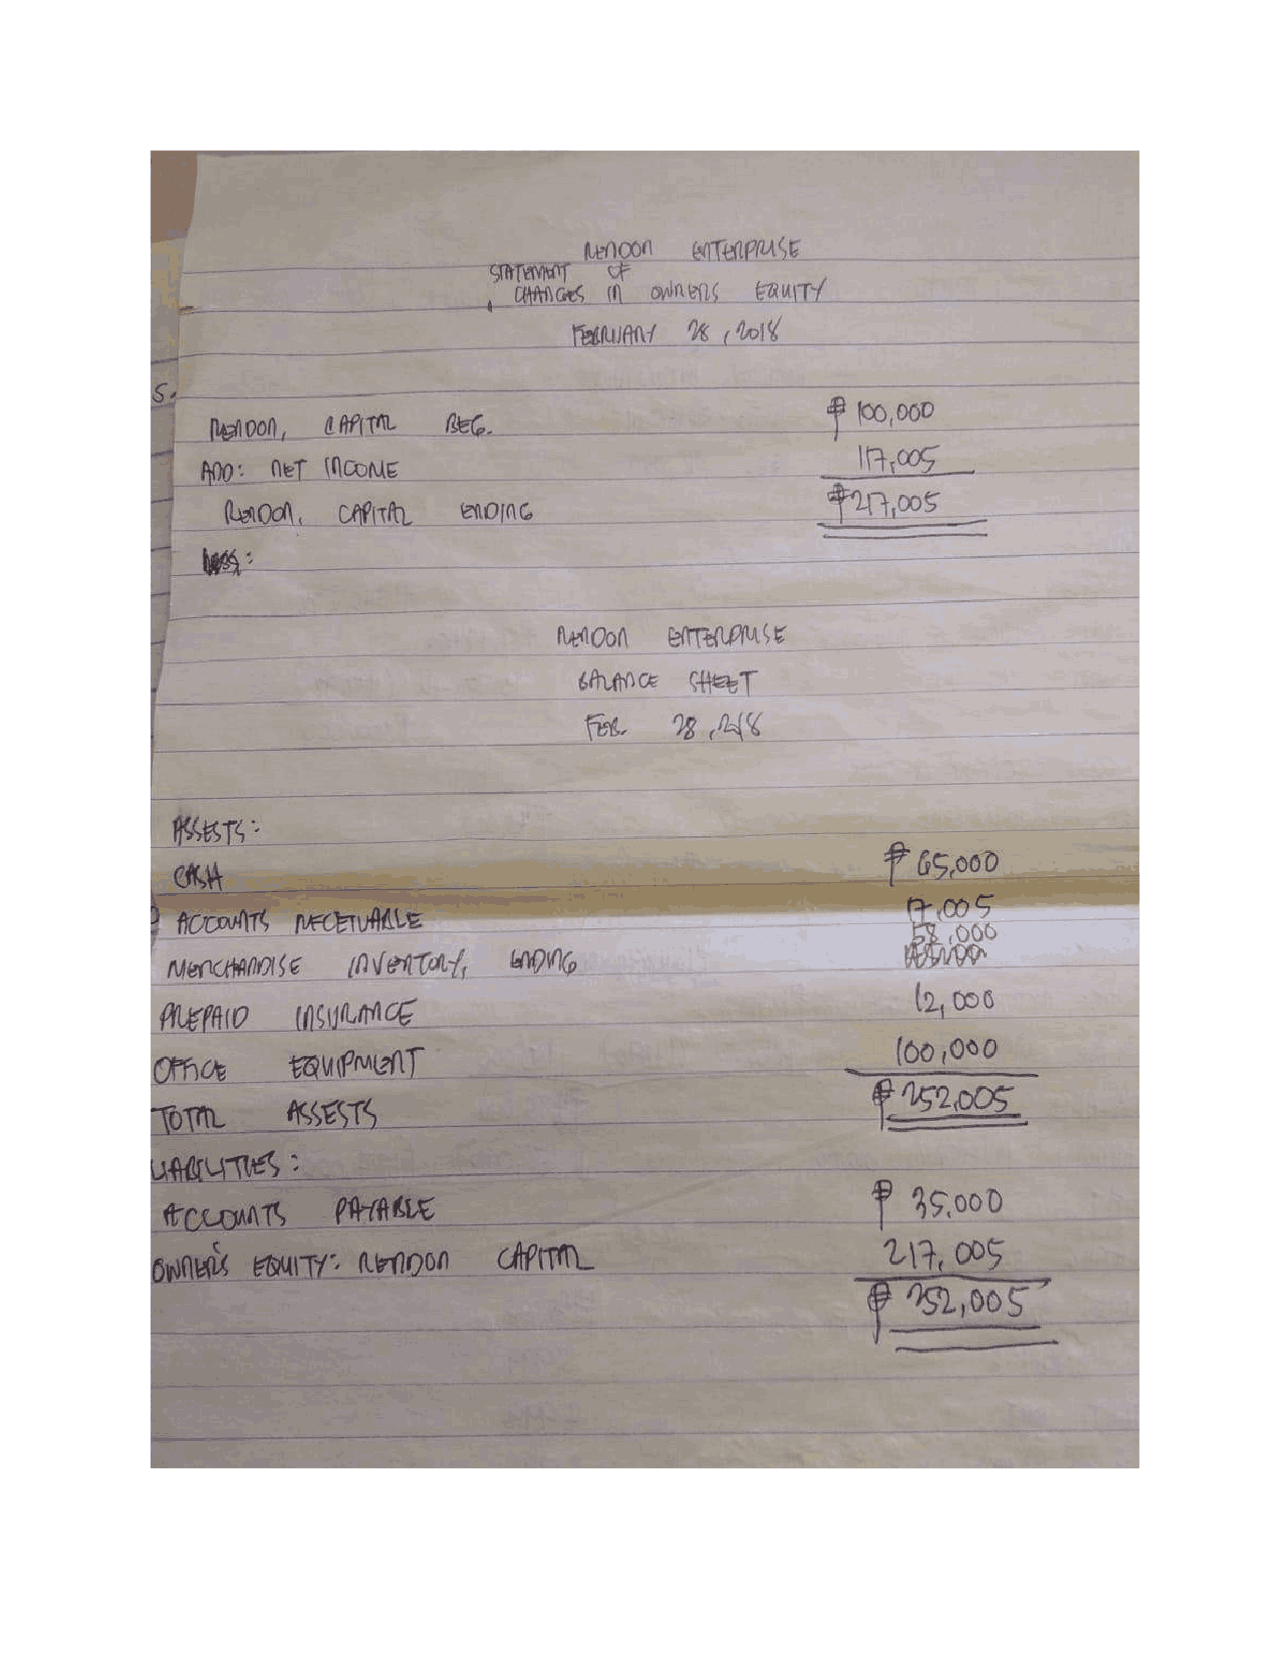 RENDON ENTERPRISE
STATEMENT OF
CHANGES IN OWNERS EQUITY
FEBRUARY 28, 2018
5.
RENDON, CAPITAL BEG. ₱ 100,000
ADD: NET INCOME 117,005
RENDON, CAPITAL ENDING ₱217,005
RENDON ENTERPRISE
BALANCE SHEET
FEB. 28, 2018
ASSESTS:
CASH ₱ 65,000
ACCOUNTS RECEIVABLE 17,005
MERCHANDISE INVENTORY, ENDING 58,000
PREPAID INSURANCE 12,000
OFFICE EQUIPMENT 100,000
TOTAL ASSESTS ₱ 252,005
LIABILITIES:
ACCOUNTS PAYABLE ₱ 35,000
OWNER'S EQUITY: RENDON CAPITAL 217,005
₱ 252,005